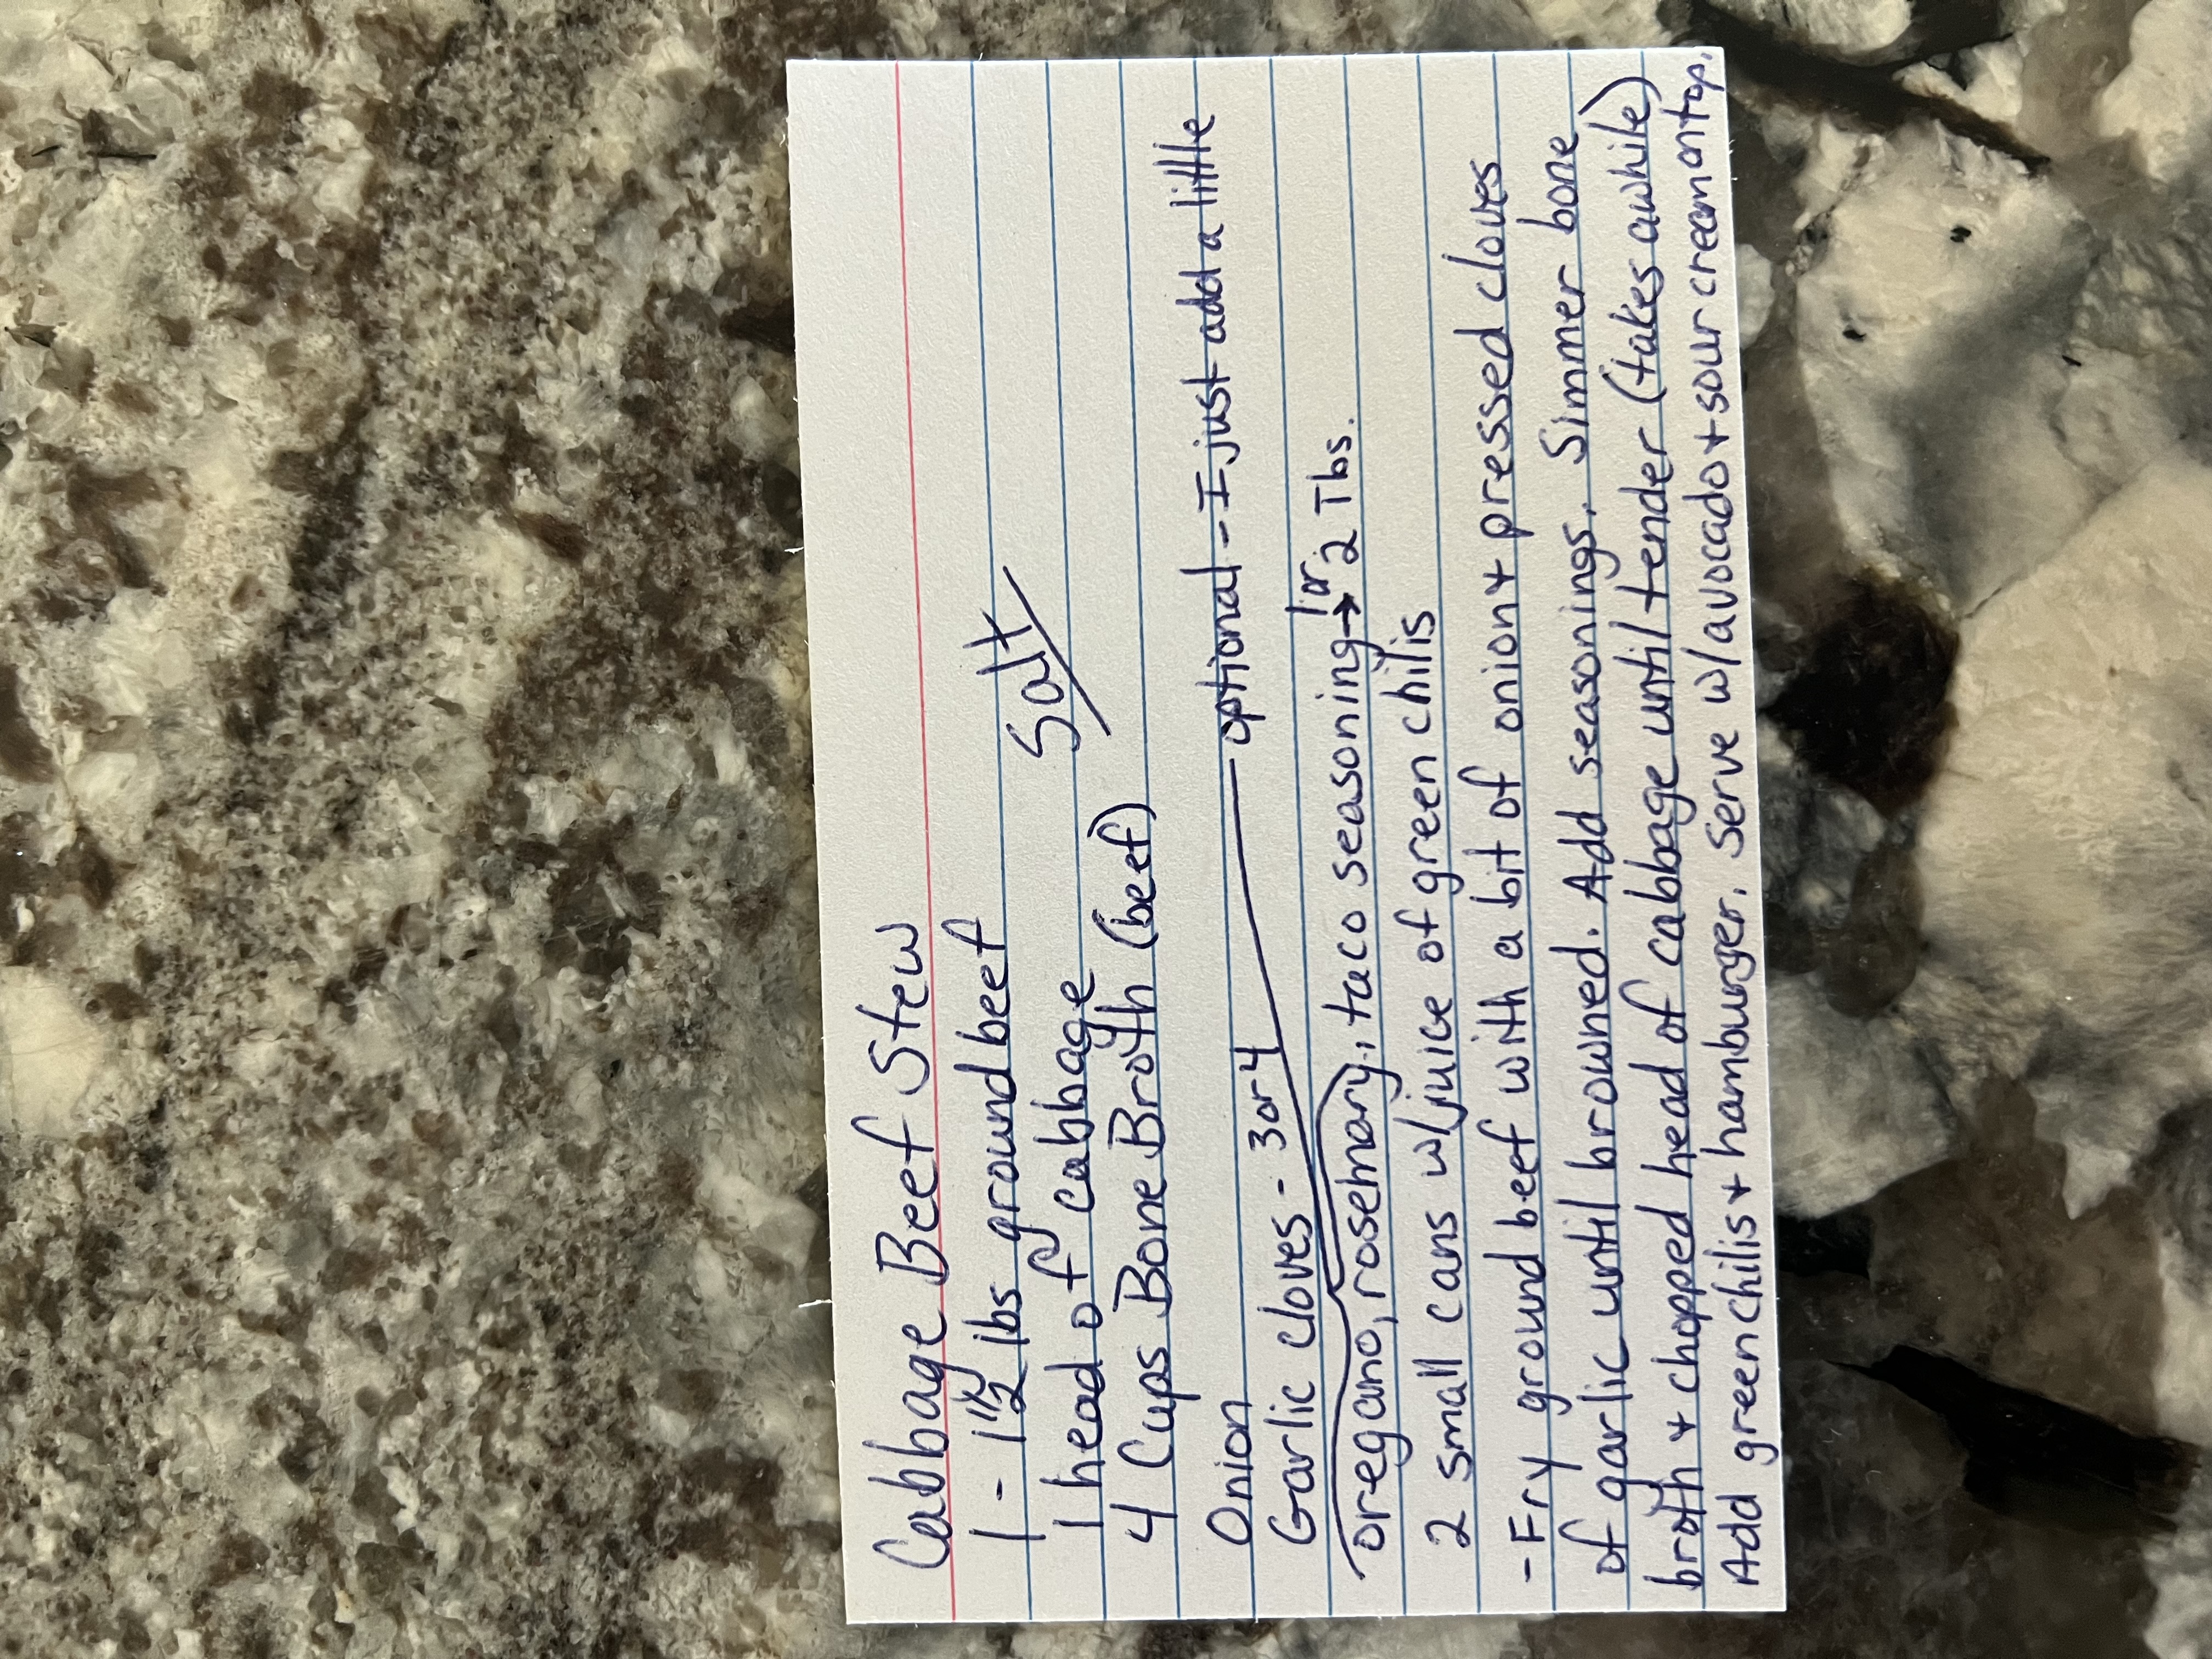 Cabbage Beef Stew
1 - 1 1/2 lbs ground beef
Salt
1 head of cabbage
4 Cups Bone Broth (beef)
Onion
optional - I just add a little
Garlic cloves - 3 or 4
oregano, rosemary, taco seasoning → 1 or 2 Tbs.
2 small cans w/juice of green chilis
- Fry ground beef with a bit of onion + pressed cloves
of garlic until browned. Add seasonings. Simmer bone
broth + chopped head of cabbage until tender (takes awhile)
Add green chilis + hamburger. Serve w/avocado + sour cream on top.